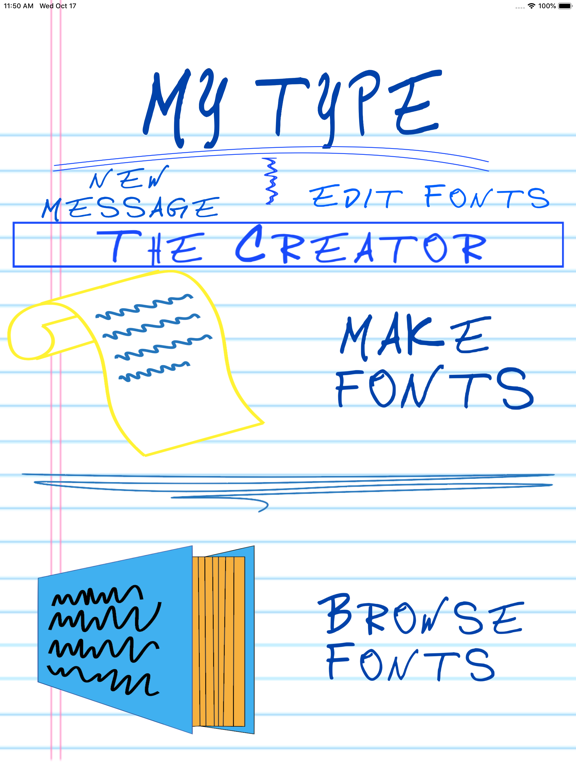 11:50 AM Wed Oct 17
100%
MY TYPE
NEW
MESSAGE
EDIT FONTS
THE CREATOR
MAKE
FONTS
BROWSE
FONTS